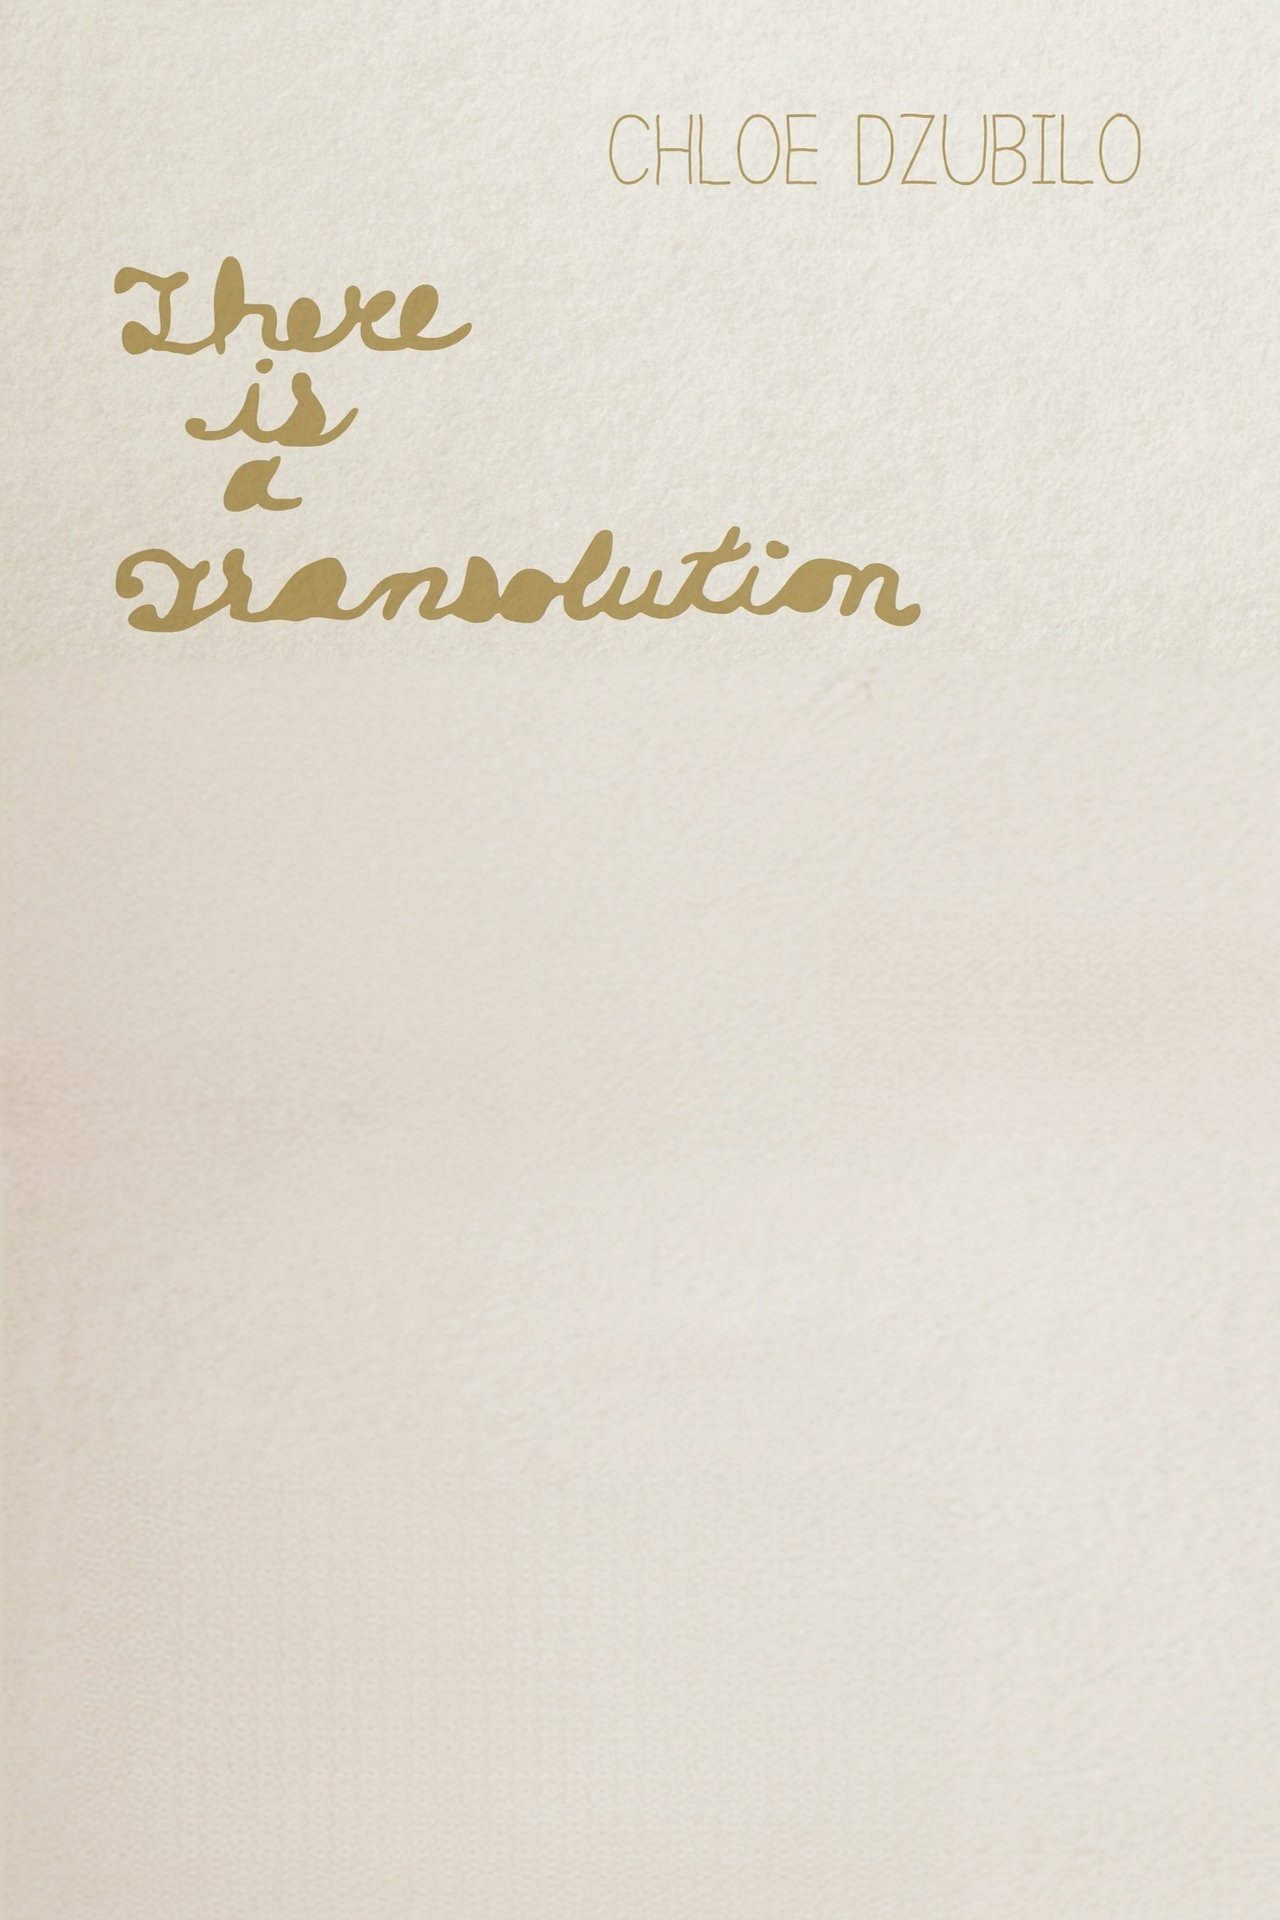 CHLOE DZUBILO
There
is
a
Transolution